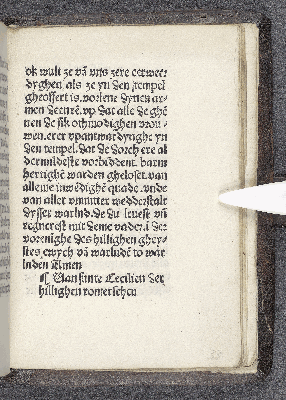 ok wult ze vā vns zere erwer
dyghen als ze yn den tempel
gheoffert is. vorlene dynen ar
men denrē. vp dat alle de ghē
nen de sik othmodighen vrou
wen. erer vpantwardynghe yn
den tempel. dat de dorch ere al
dermildeste vorbiddent. barm
hertighē warden gheloset. van
alleme inwēdighē quade. vnde
van aller vmmer wedderstalt
dysser warlnd. De du leuest vū
regnerest mit deme vader. ī der
vorenighe des hillighen ghey-
stes ewych vā warldē to war
lnden Amen
¶ Van sunte Cecilien der
hillighen romerschen